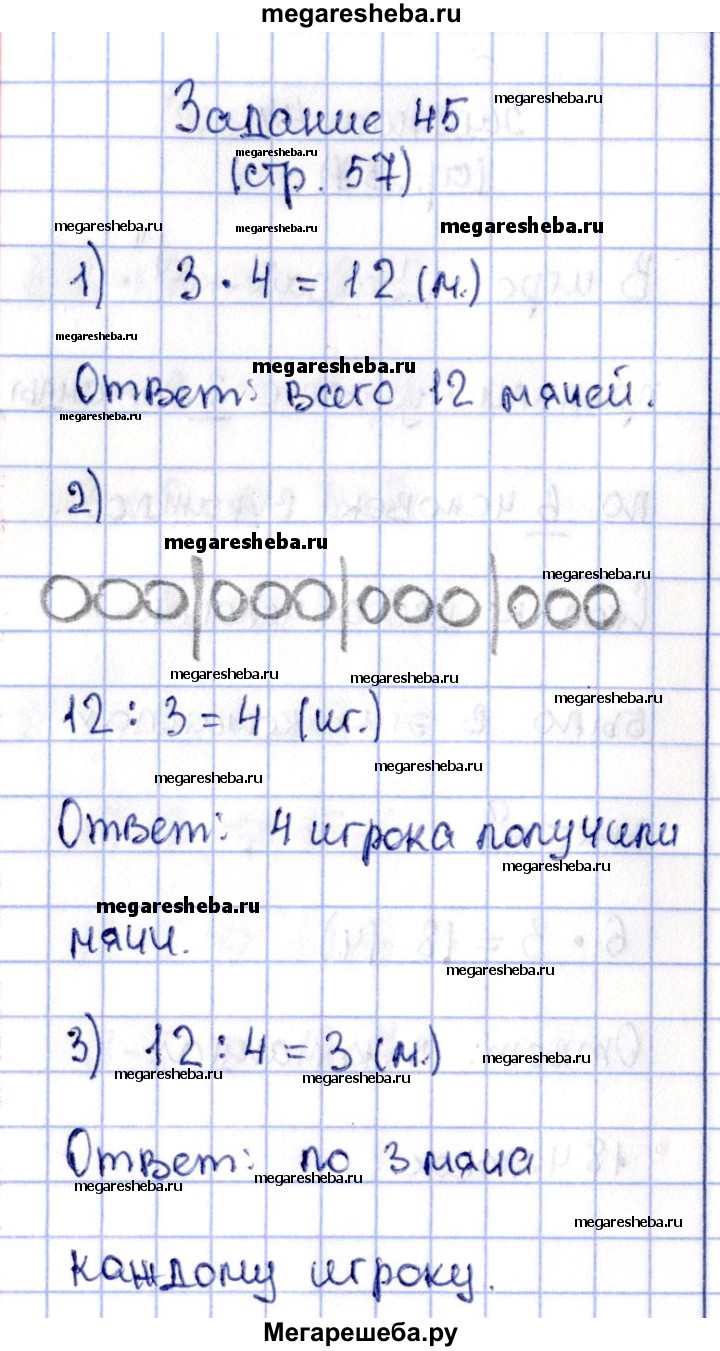 megaresheba.ru
Задание 45
megaresheba.ru
megaresheba.ru
(стр. 57)
megaresheba.ru
megaresheba.ru
megaresheba.ru
1) 3 · 4 = 12 (м.)
megaresheba.ru
megaresheba.ru
Ответ: всего 12 мячей.
megaresheba.ru
2)
megaresheba.ru
megaresheba.ru
megaresheba.ru
megaresheba.ru
megaresheba.ru
12 : 3 = 4 (иг.)
megaresheba.ru
megaresheba.ru
Ответ: 4 игрока получили
megaresheba.ru
megaresheba.ru
мячи.
megaresheba.ru
3) 12 : 4 = 3 (м.)
megaresheba.ru
megaresheba.ru
megaresheba.ru
Ответ: по 3 мяча
megaresheba.ru
megaresheba.ru
megaresheba.ru
каждому игроку.
Мегарешеба.ру